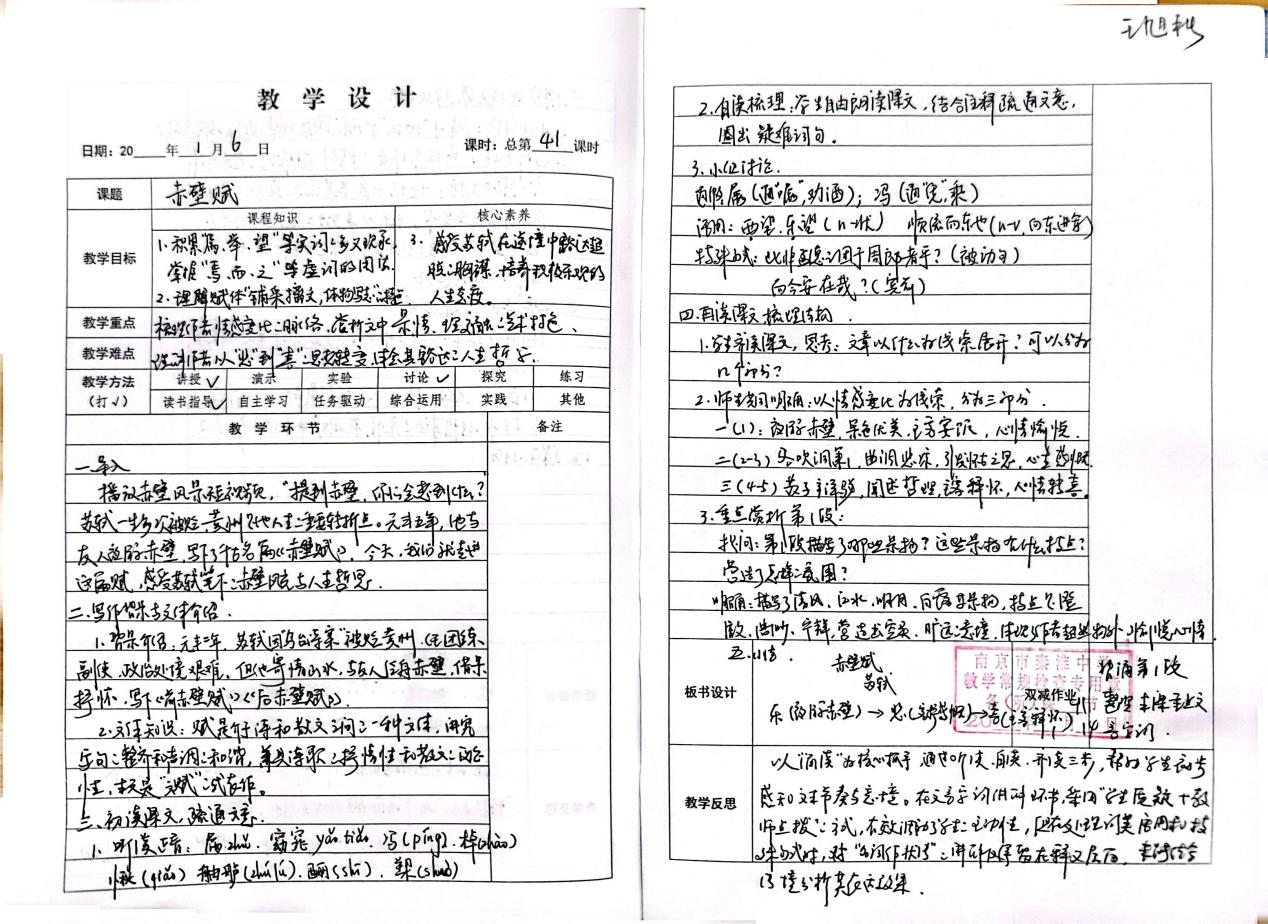 教学设计
日期：20 年 1 月 6 日
课时：总第 41 课时
课题 赤壁赋
课程知识 核心素养
教学目标
1.积累"属、举、望"等实词之多义现象
掌握"焉、而、之"等虚词的用法.
2.理解赋体"铺采摛文,体物
3. 感受苏轼在逆境中豁达超
脱之胸襟,培养积极乐观的
人生态度。
教学重点 梳理作者情感变化之脉络,赏析文中景、情、理交融之艺术特色、
教学难点 作者从"悲"到"喜"之思想转变,体会其豁达之人生哲学.
教学方法 讲授√ 演示 实验 讨论√ 探究 练习
（打√） 读书指导√ 自主学习 任务驱动 综合运用 实践 其他
教学环节 备注
一.导入
播放赤壁风景短视频,"提到赤壁,你们会想到什么?
苏轼一生多次被贬,黄州是他人生之重要转折点。元丰五年,他与
友人夜游赤壁,写下了千古名篇《赤壁赋》。今天,我们就走进
这篇赋,感受苏轼笔下之赤壁风光与人生哲思.
二.写作背景与文体介绍.
1.背景介绍:元丰二年,苏轼因"乌台诗案"被贬黄州,任团练
副使,政治处境艰难,但他寄情山水,与友人泛舟赤壁,借景
抒怀,写下《前赤壁赋》《后赤壁赋》.
2.文体知识:赋是介于诗和散文之间之一种文体,讲究
句之整齐和声调之和谐,兼具诗歌之抒情性和散文之
性,本文是"文赋"之代表作。
三.初读课文,疏通文意.
1. 听读正音: 属zhǔ. 窈窕yǎo tiǎo. 冯(píng). 棹(zhào)
(qiǎo) 舳舻(zhú lú).
2.自读梳理:学生自由朗读课文,结合注释疏通文意,
圈出疑难词句。
3.小组讨论.
属(通"嘱",劝酒); 冯(通"凭",乘)
活用: 西望、东望(n→状) 顺流而东也(n→v,向东进军)
特殊句式: 此非孟德之困于周郎者乎?(被动句)
而今安在哉?(宾前)
四.再读课文,梳理结构.
1.学生齐读课文,思考:文章以什么为线索展开?可以分为
几个部分?
2.师生共同明确:以情感变化为线索,分为三部分.
一(1): 夜游赤壁,景色优美,主客安
，心情愉悦.
二(2-3) 客吹洞箫,曲调悲凉,引发怀古之思,心生感慨.
三(4-5) 苏子
,阐述哲理,客释怀,心情转喜。
3.重点赏析第1段:
提问:第1段描写了哪些景物?这些景物有什么特点?
营造了怎样之氛围?
明确:描写了清风、江水、明月、白露等景物,特点是澄
澈、浩渺、宁静,营造出空灵、旷远之意境,体现作者超然物外、愉悦之心情.
五.小结.
板书设计
赤壁赋
苏轼
乐(夜游赤壁)→悲
→喜(主客释怀)
南京市秦淮中学
教学常规检查专用章
双减作业
朗诵第1段
整理本课重点文
言实词.
教学反思
以"诵读"为核心抓手,通过听读、自读、齐读三步,帮助学生初步
感知文本节奏与意境。在文言字词
环节,采用"学生质疑+教
师点拨"之方式,有效调动了学生之主动性,但在处理词类活用和特
殊句式时,对"名词作状语"之讲解仅停留在释义层面,未能结合
语境分析其表达效果.